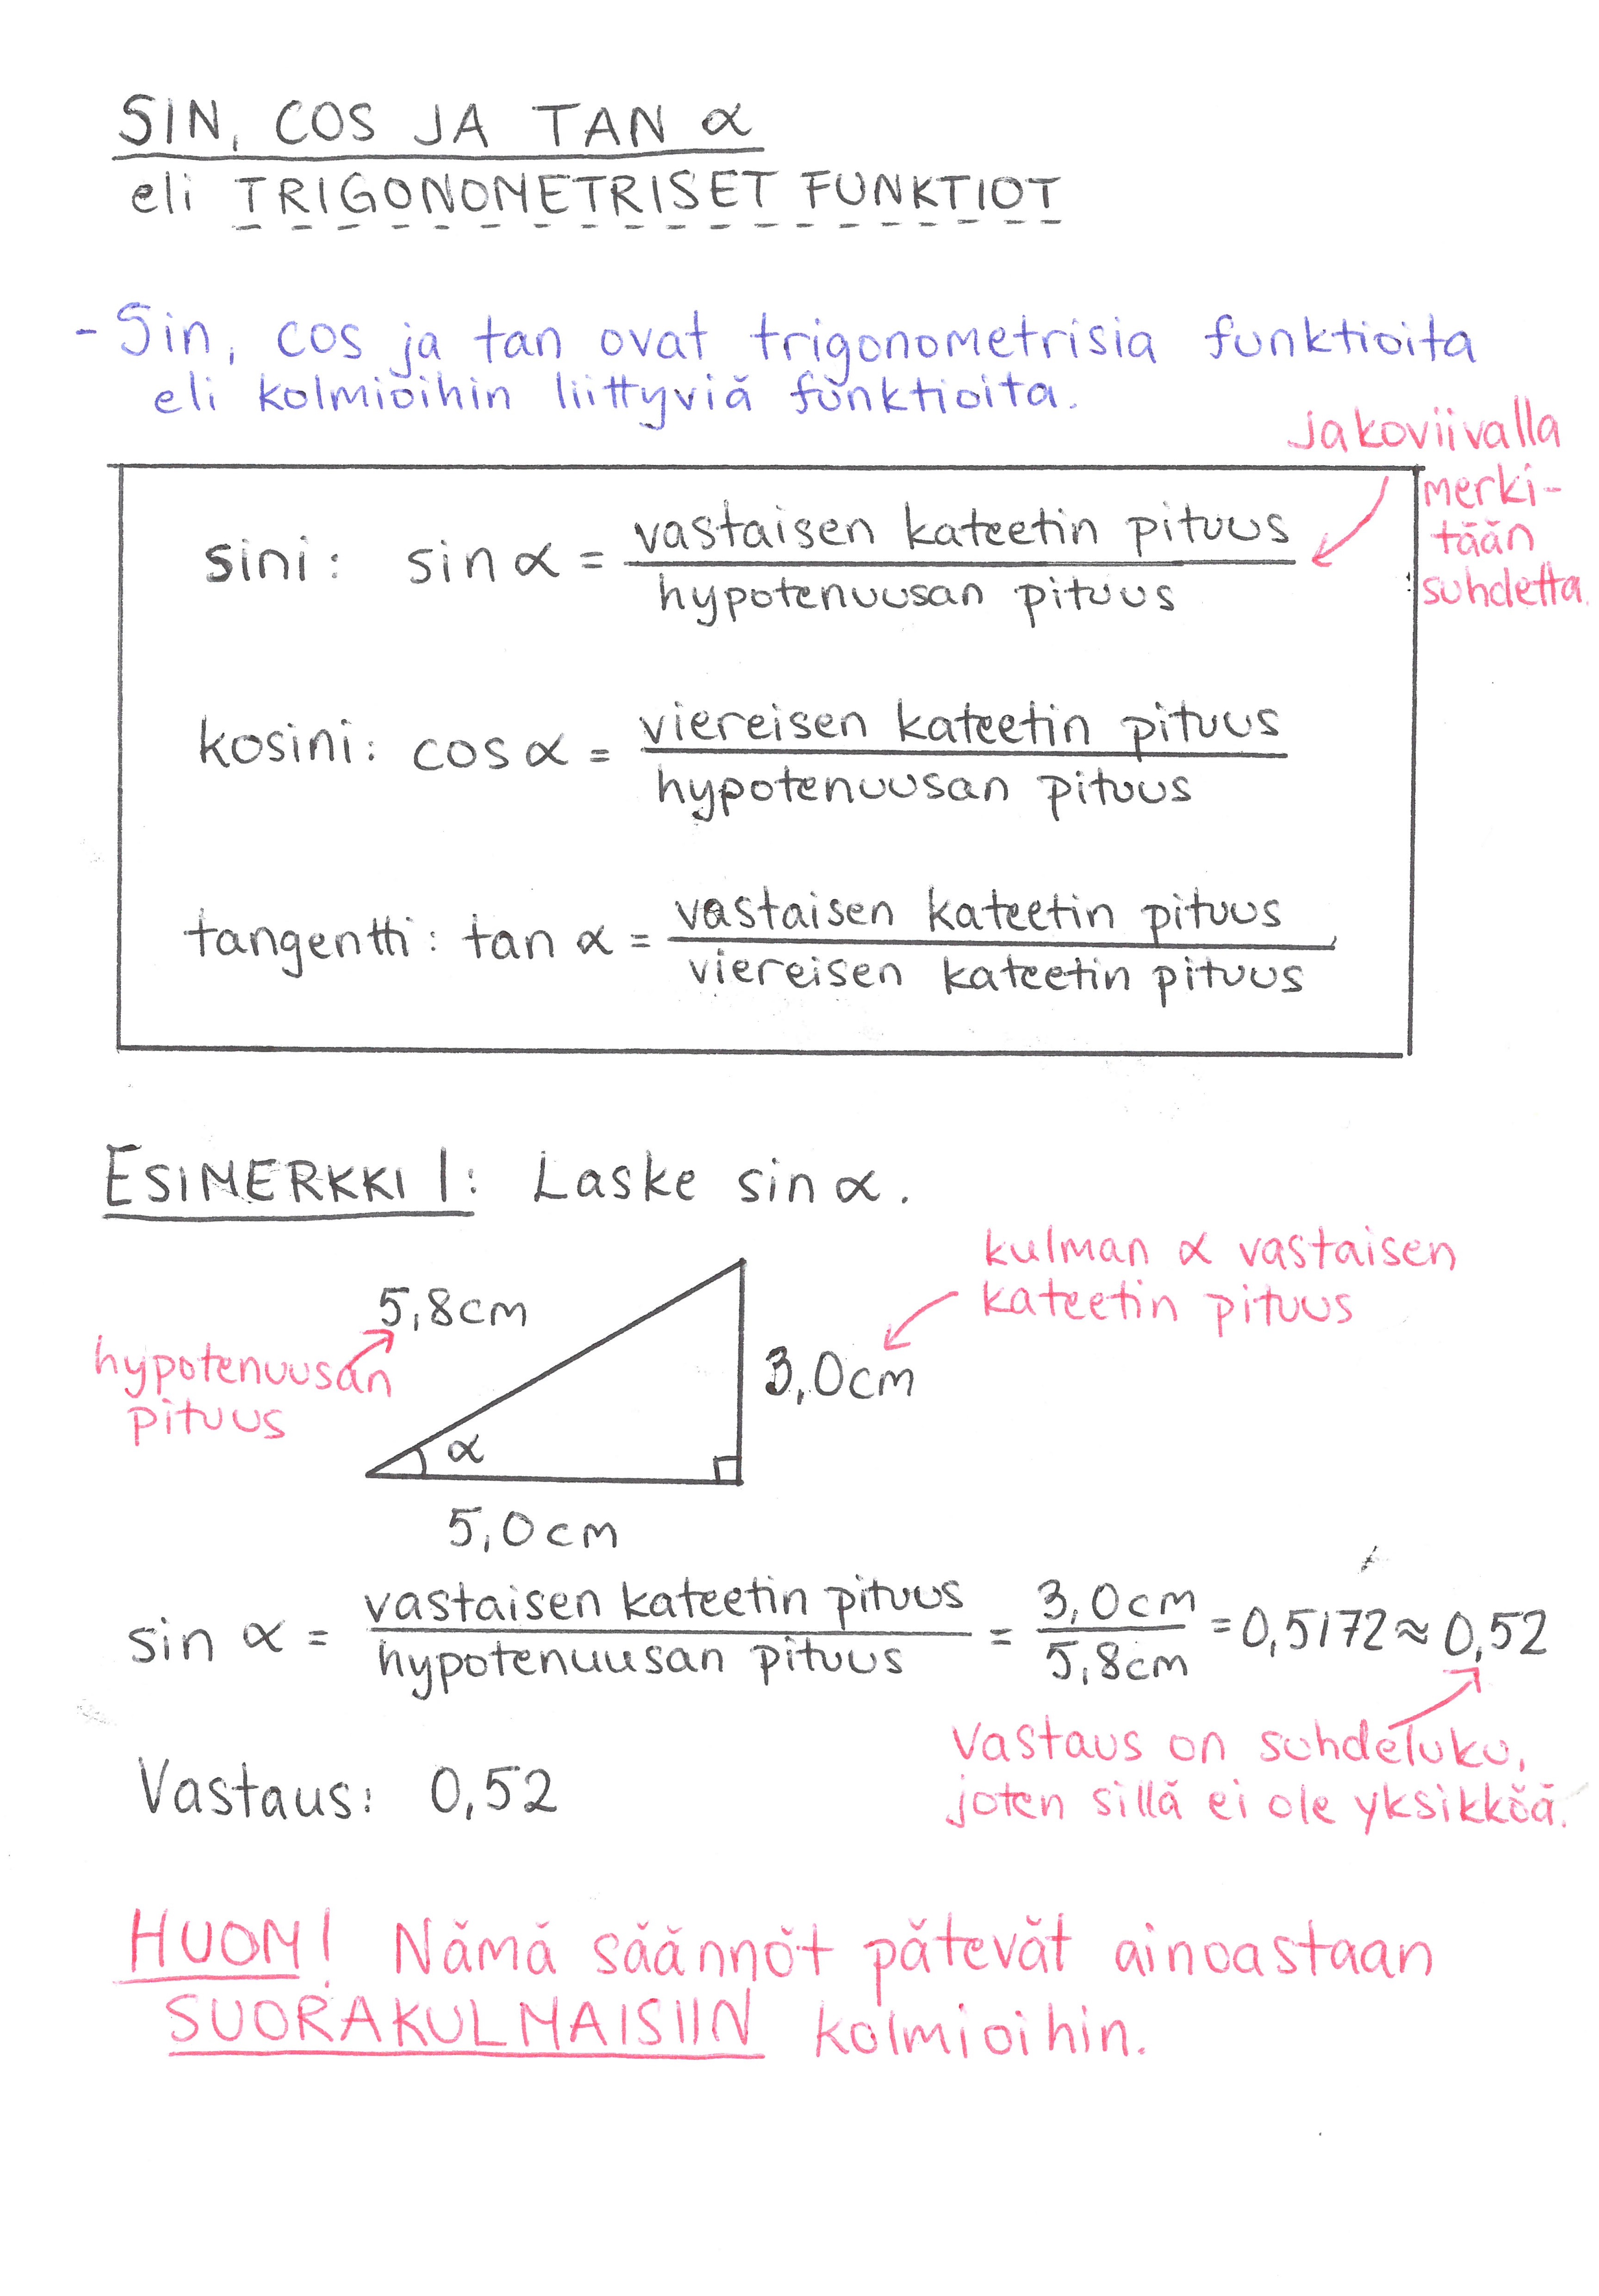 SIN, COS JA TAN α
eli TRIGONOMETRISET FUNKTIOT
- Sin, cos ja tan ovat trigonometrisia funktioita
eli kolmioihin liittyviä funktioita.
Jakoviivalla
merki-
tään
suhdetta.
sini: sin α = vastaisen kateetin pituus
hypotenuusan pituus
kosini: cos α = viereisen kateetin pituus
hypotenuusan pituus
tangentti: tan α = vastaisen kateetin pituus
viereisen kateetin pituus
ESIMERKKI 1: Laske sin α.
kulman α vastaisen
kateetin pituus
5,8cm
hypotenuusan
pituus
3,0cm
α
5,0cm
sin α = vastaisen kateetin pituus = 3,0cm = 0,5172 ≈ 0,52
hypotenuusan pituus 5,8cm
Vastaus on suhdeluku,
joten sillä ei ole yksikköä.
Vastaus: 0,52
HUOM! Nämä säännöt pätevät ainoastaan
SUORAKULMAISIIN kolmioihin.